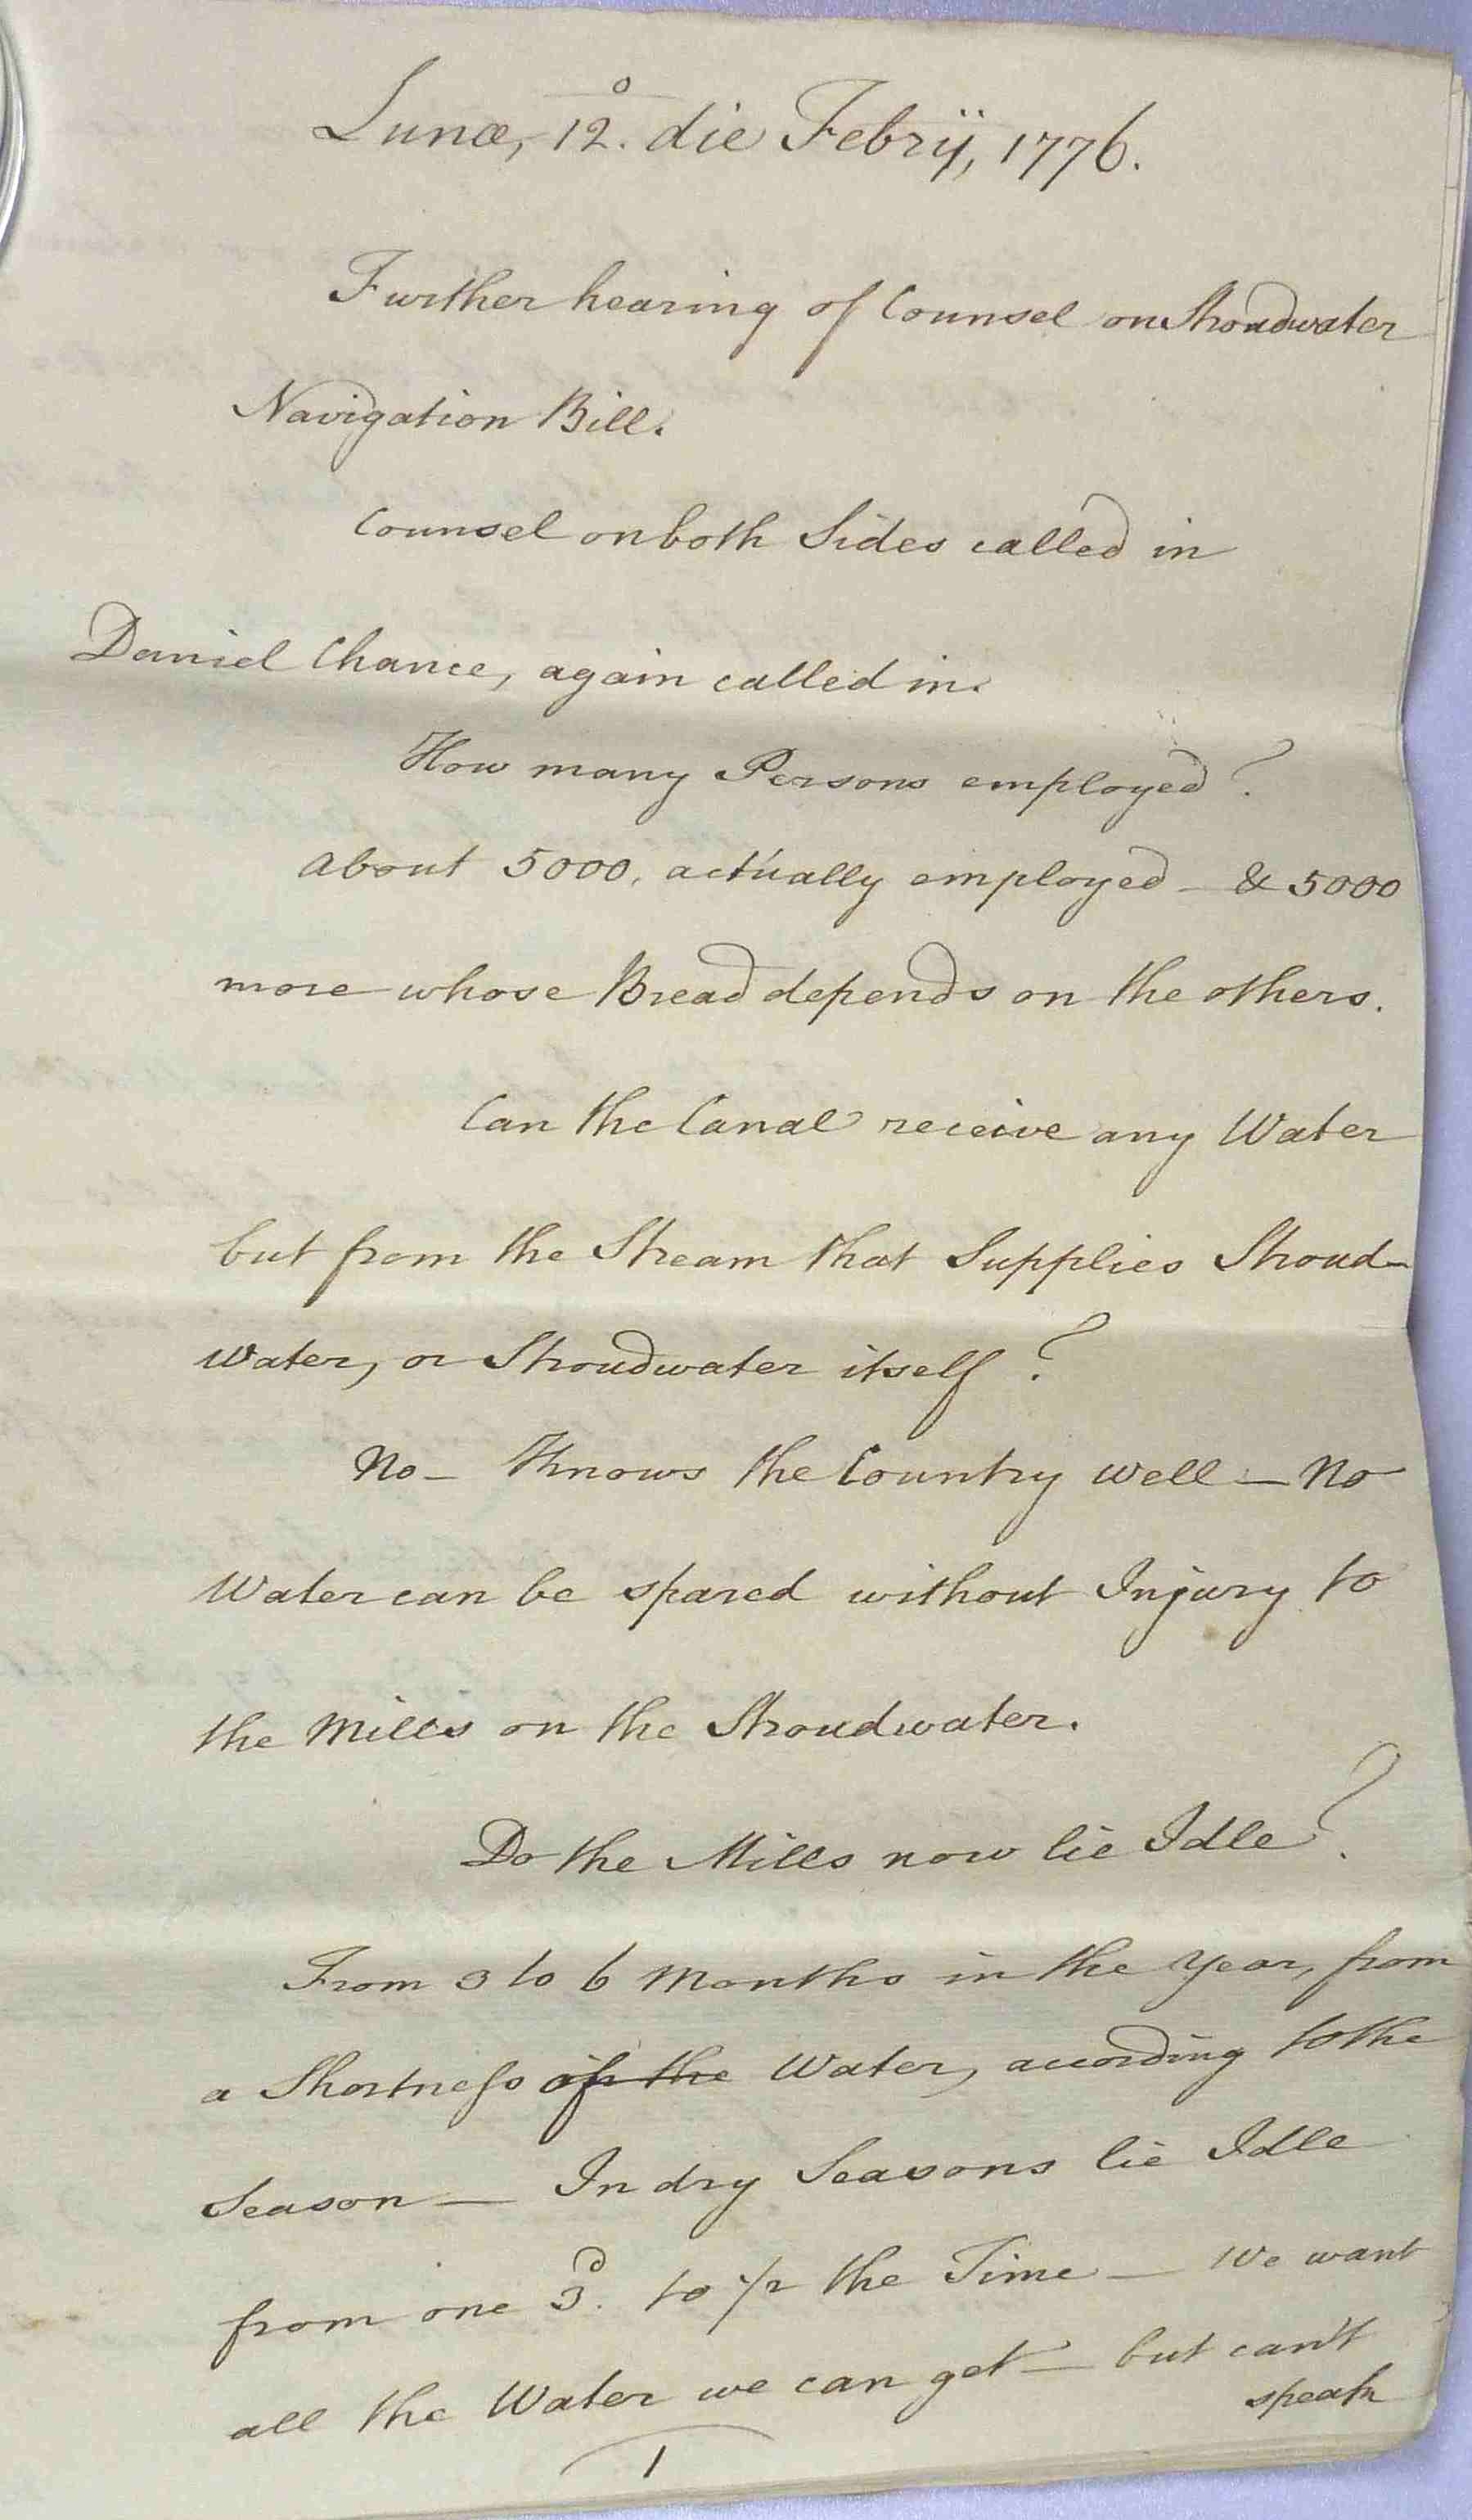 Lunæ, 12.° die Febrij, 1776.
Further hearing of Counsel on Stroudwater
Navigation Bill.
Counsel on both Sides called in
Daniel Chance, again called in.
How many Persons employed?
about 5000, actually employed – & 5000
more whose Bread depends on the others.
Can the Canal receive any Water
but from the Stream that Supplies Stroud-
water, or Stroudwater itself?
No – Knows the Country well – No
Water can be spared without Injury to
the Mills on the Stroudwater.
Do the Mills now lie Idle?
From 3 to 6 Months in the Year, from
a Shortness of the Water, according to the
Season – In dry Seasons lie Idle
from one 3.d to 1/2 the Time – We want
all the Water we can get – but can't
speak
1